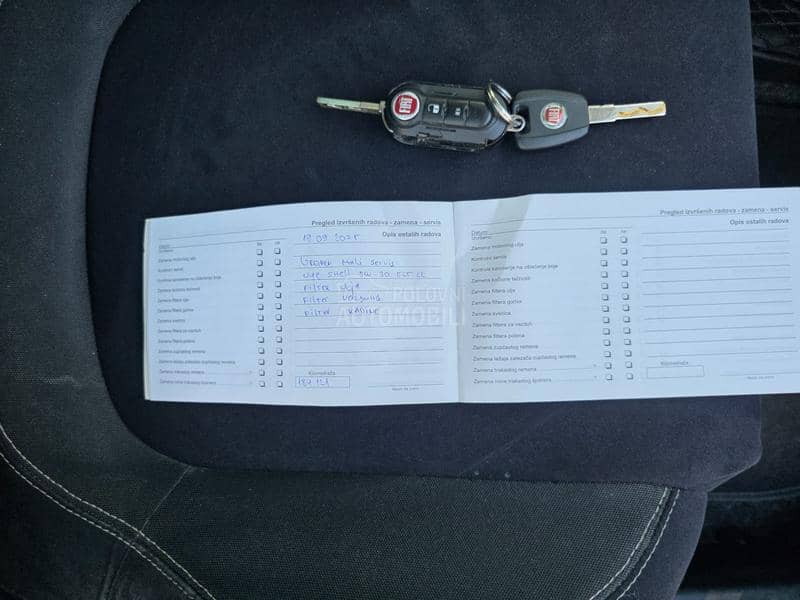 FIAT
FIAT
Pregled izvršenih radova - zamena - servis
Datum
Opis ostalih radova
Izvršeno
ne
da
18 09 2025
Zamena motornog ulja
Kontrola servisi
Kontrola kancelarije na oblačenje boje
Zamena kočione tečnosti
Zamena filtera ulja
Zamena filtera goriva
Zamena svećica
Zamena filtera za vazduh
Zamena filtera polena
Zamena zupčastog remena
Zamena ležaja zatezača zupčastog remena
Zamena trakastog remena
Mali servis
ulje Shell 5W-30
Filter ulja
Filter vazduha
Filter kabine
Kilometraža
187 121
POLOVNI
AUTOMOBILI
Pregled izvršenih radova - zamena - servis
Datum
Opis ostalih radova
Izvršeno
ne
da
Zamena motornog ulja
Kontrola servisi
Zamena kočione tečnosti
Zamena filtera ulja
Zamena filtera goriva
Zamena svećica
Zamena filtera za vazduh
Zamena filtera polena
Zamena zupčastog remena
Zamena ležaja zatezača zupčastog remena
Zamena trakastog remena
Kilometraža